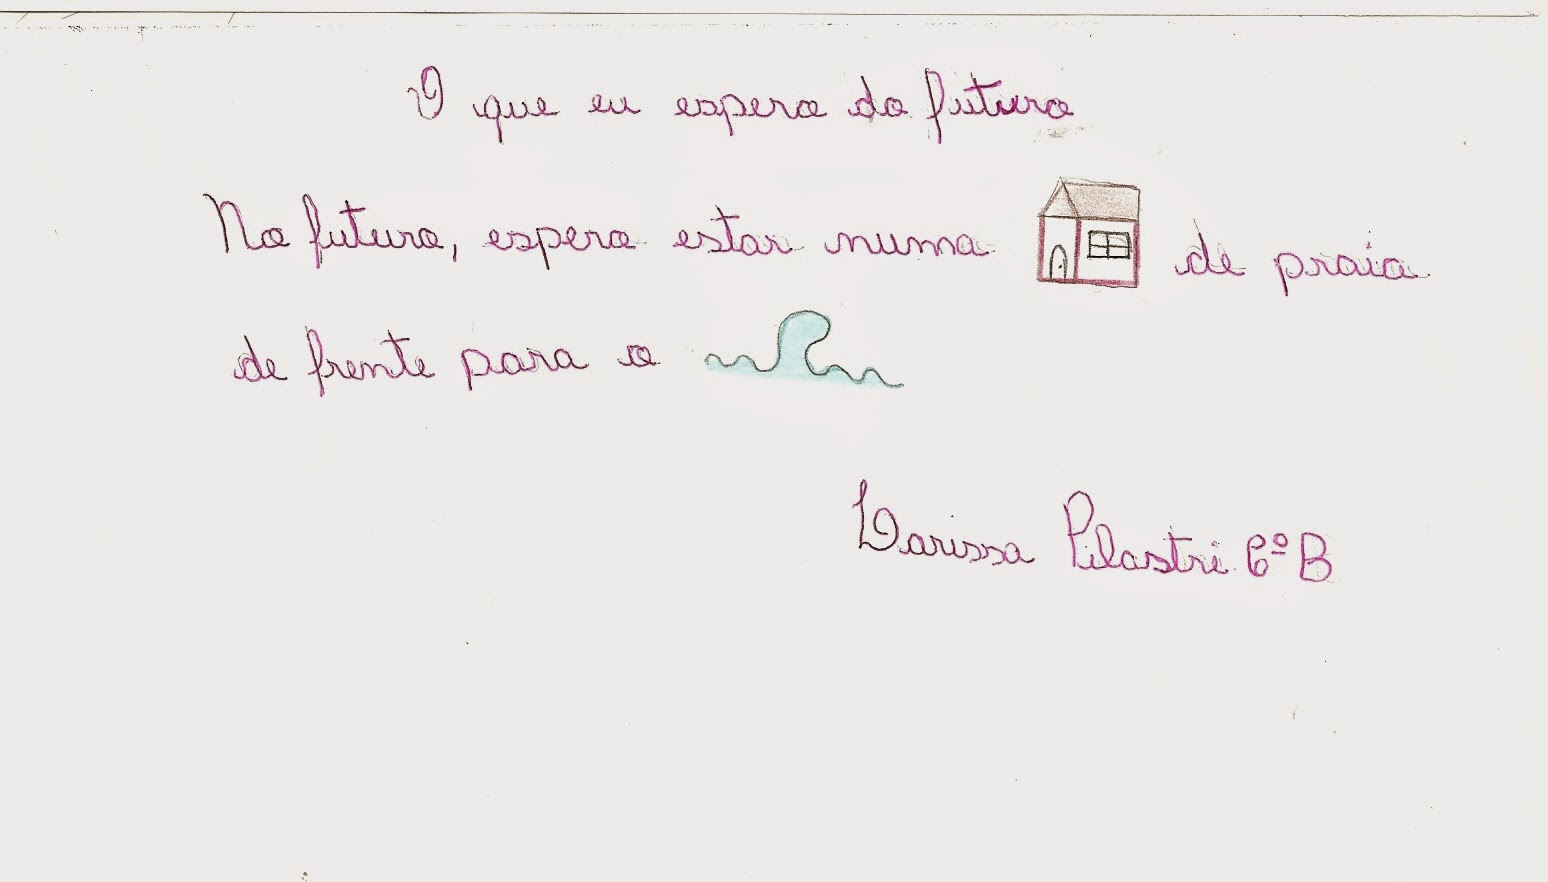 O que eu espero do futuro
No futuro, espero estar numa de praia
de frente para o
Larissa Pilastri 6º B